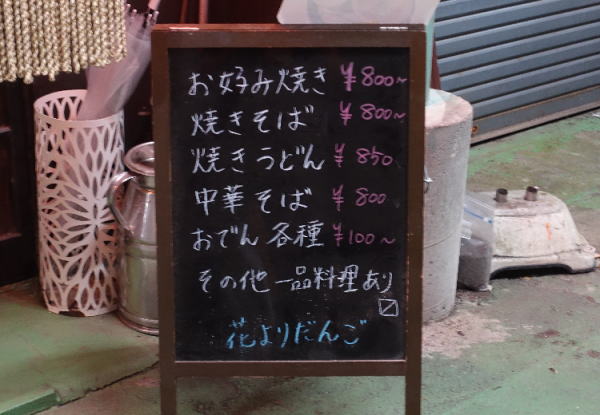 お好み焼き ¥800~
焼きそば ¥800~
焼きうどん ¥850
中華そば ¥800
おでん各種 ¥100~
その他一品料理あり
〼
花よりだんご